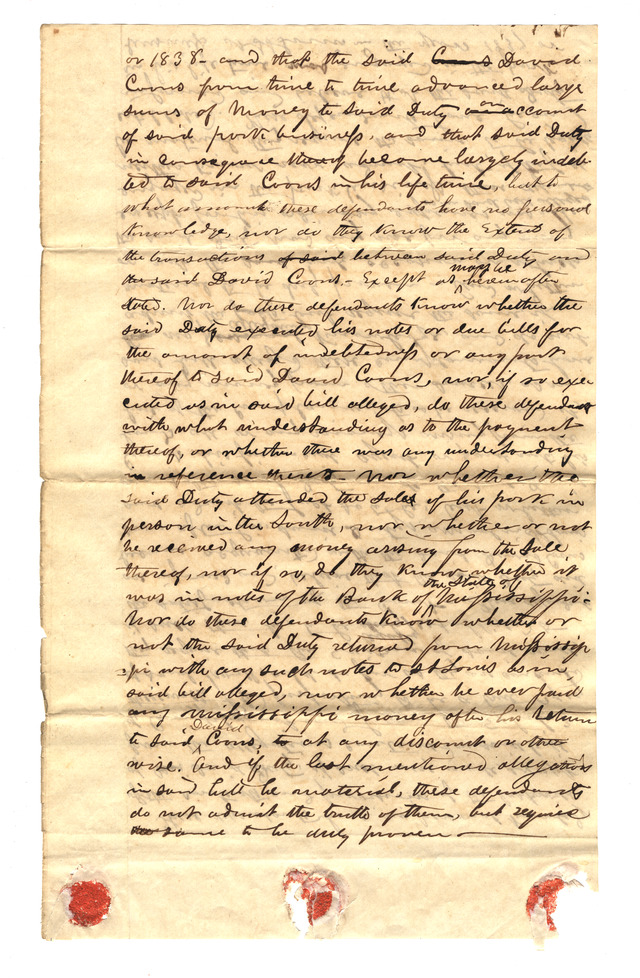 or 1838 - and that the said Coons David
Coons from time to time advanced large
sums of Money to said Duty on account
of said pork business, and that said Duty
in consequence thereof became largely indeb-
ted to said Coons in his life time, but to
what amount these defendants have no personal
knowledge, nor do they know the Extent of
the transactions of said between said Duty and
the said David Coons - Except as may be hereinafter
stated. Nor do these defendants know whether the
said Duty executed his notes or due bills for
the amount of indebtedness or any part
thereof to said David Coons, nor, if so exe-
cuted as in said bill alleged, do these defendants
with what understanding as to the payment
thereof, or whether there was any understanding
in reference thereto - Nor whether the
said Duty attended the sales of his pork in
person in the South, nor whether or not
he received any money arising from the Sale
thereof, nor if so, do they know whether it
was in notes of the Bank of the State of Mississippi -
Nor do these defendants know whether or
not the said Duty returned from Mississip-
pi with any such notes to St Louis as in
said bill alleged, nor whether he ever paid
any Mississippi money after his return
to said David Coons, to at any discount or other
wise. And if the last mentioned allegations
in said bill be material, these defendants
do not admit the truth of them, but require
the same to be duly proven